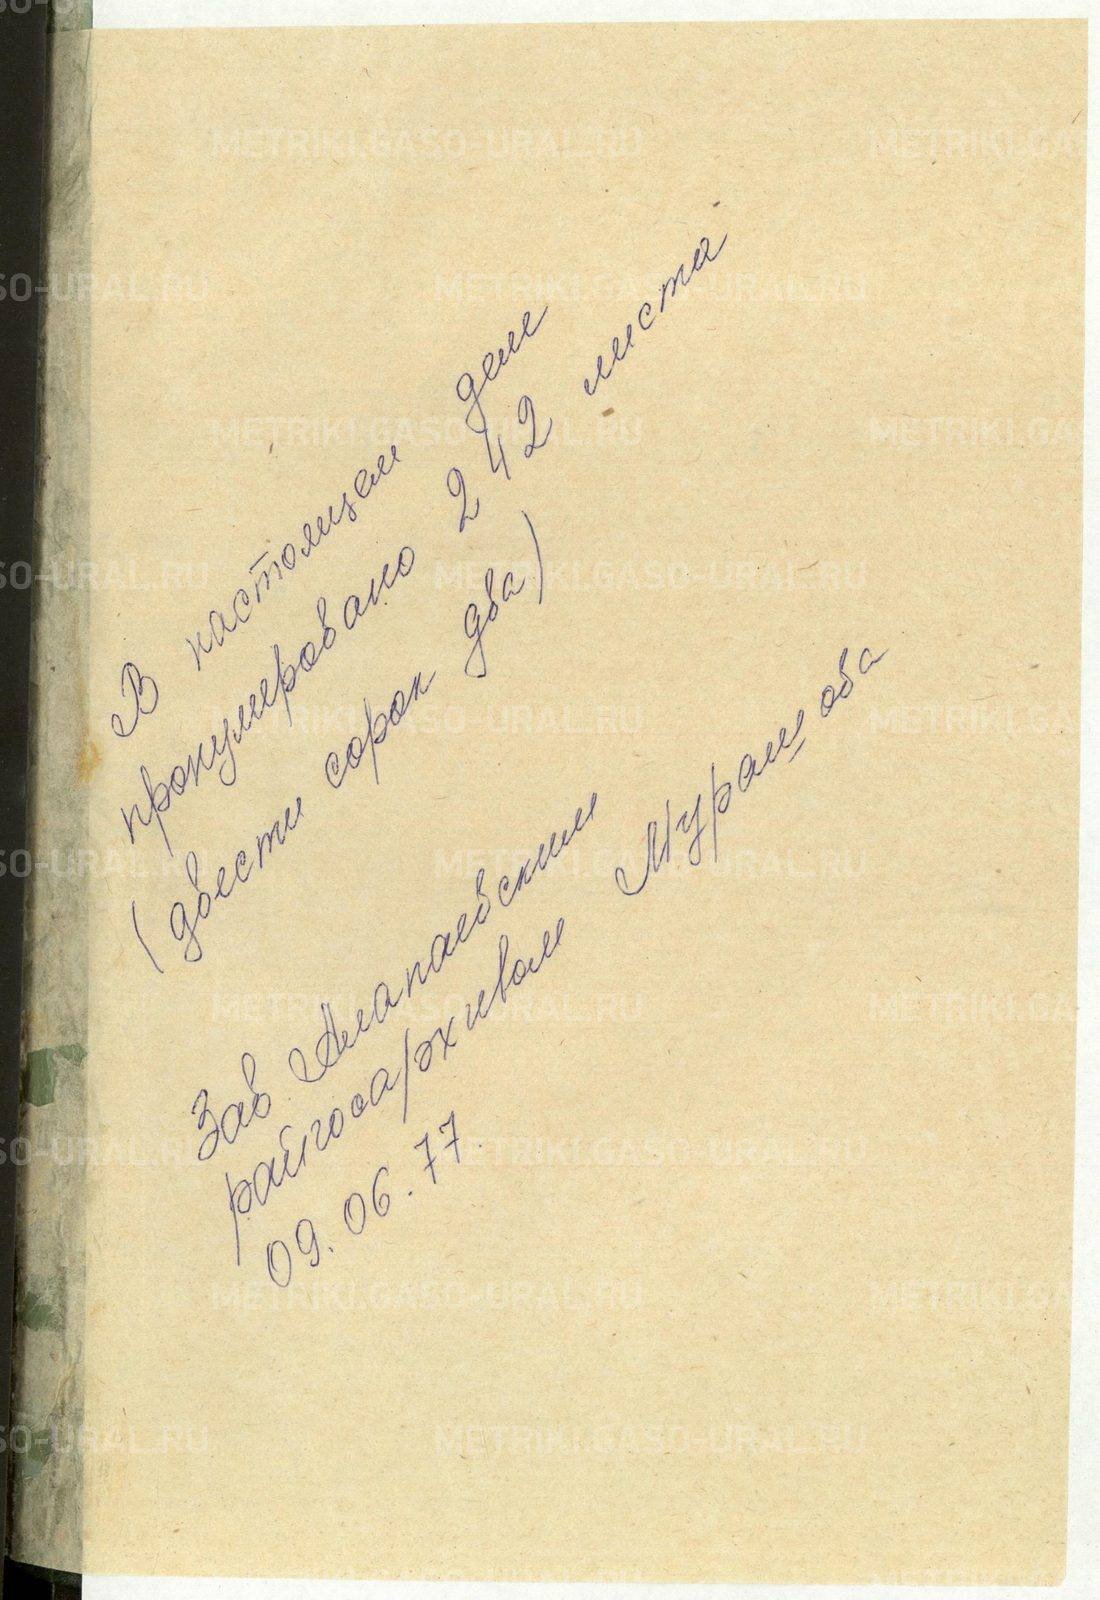 В настоящем деле
пронумеровано 242 листа
(двести сорок два)
Зав Алапаевским
райгосархивом Мурашова
09.06.77
METRIKI.GASO-URAL.RU